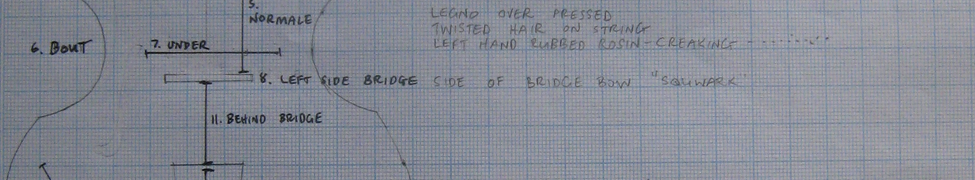 5.
NORMALE
LEGNO OVER PRESSED
TWISTED HAIR ON STRING
LEFT HAND RUBBED ROSIN-CREAKING
6. BOUT
7. UNDER
8. LEFT SIDE BRIDGE SIDE OF BRIDGE BOW "SQUWARK"
11. BEHIND BRIDGE